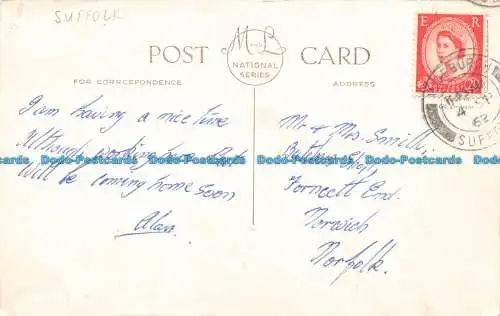 SUFFOLK
POST CARD
M and L
NATIONAL
SERIES
FOR CORRESPONDENCE
ADDRESS
E R
SUFF
4
I am having a nice time
Although
will be coming home soon
Alan.
Mr & Mrs. Smith,
Forncett End.
Norwich
Norfolk.
Dodo-Postcards Dodo-Postcards Dodo-Postcards Dodo-Postcards